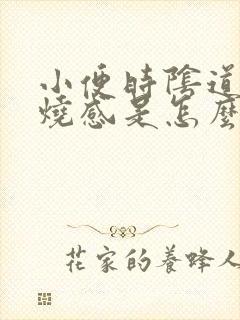 小便時陰道
燒感是怎麼
花家的養蜂人